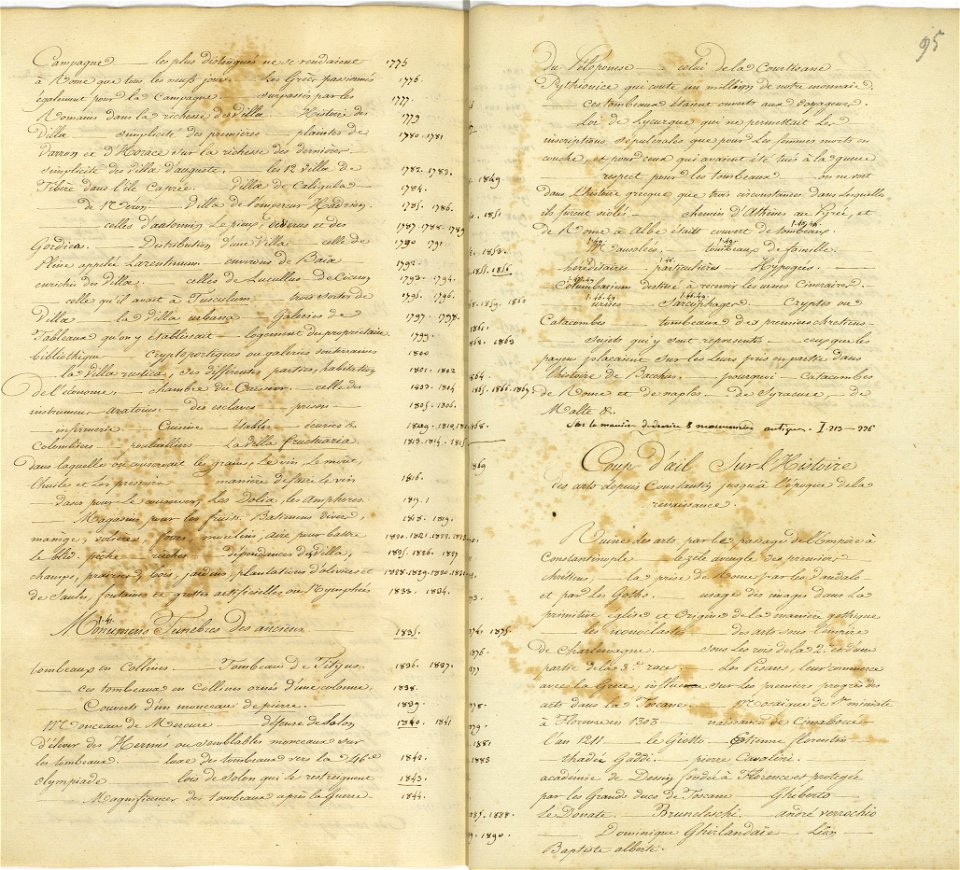 Campagne — les plus distingués ne se rendaient 1775
à Rome que tous les neufs jours. Les Grecs passionnés 1776.
également pour la Campagne. — surpassés par les 1777.
Romains dans la richesse des Villa. Histoire des 1779
Villa — simplicité des premières — plaintes de 1780. 1781
Varron et d'Horace sur la richesse des dernières.
simplicité des Villa d'auguste, — les 12 Villa de 1782. 1783.
Tibère dans l'île Caprée. Villa de Caligula — 1784.
de Néron — Villa de l'empereur Hadrien. 1785. 1786.
— celles d'antonin le pieux, Verus et des 1787. 1788. 1789
Gordien. — Distribution d'une Villa — celle de 1790 1791.
Pline appelée Laurentinum. — environs de Baïa 1792.
enrichis des Villa. celles de Lucullus de Ciceron 1793. 1794.
celle qu'il avait à Tusculum — trois sortes de 1795. 1796.
Villa — la Villa urbana Galeries de 1797. 1798.
Tableaux qu'on y établissait — logement du propriétaire 1799.
bibliothèque — cryptoportiques ou galeries souterraines 1800
— la Villa rustica, ses différentes parties, habitation 1801. 1802
de l'économe, — chambre du Caisson — celle des 1803. 1804
instrumens aratoires — des esclaves — prisons — 1805. 1806.
— infirmerie Cuisine — étables — écuries — 1809. 1810. 1811
Colombiers — poulaillers — La Villa fructuaria 1813. 1814. 1815
dans laquelle on conservait les grains, le vin, le miel,
l'huile et les — manière de faire le vin 1816.
Vases pour le conserver, Les Dolia, les Amphores 1817
— Magasins pour les fruits. Batimens divers, 1818. 1819.
manège, volières, fours, moulins, aire pour battre 1820. 1821. 1822. 1823
le blé pêche ruches — dépendances des Villa, 1825. 1826. 1827
champs, prairies, bois, jardins, plantations d'oliviers et 1828. 1829. 1830. 1831
de Saules, fontaines et grottes artificielles ou Nymphées 1833. 1834.
Monumens Funèbres des anciens — 1835.
tombeaux en Collines. — Tombeau de Tityus. 1836. 1837.
— ces tombeaux en Collines ornés d'une colonne, 1838.
Couverts d'un monceau de pierre. 1839.
Monceaux de Mercure — défense de Solon 1840. 1841
d'élever des Hermès ou semblables monceaux sur
les tombeaux. — luxe des tombeaux vers la 46e 1842.
Olympiade — lois de Solon qui le restreignent 1843.
— Magnificence des tombeaux après la Guerre 1844.
95
du Péloponèse — celui de la Courtisane
Pythionice qui coute un million de notre monnaie.
— ces tombeaux étaient ouverts aux voyageurs.
Loi de Lycurgue qui ne permettait les
inscriptions sépulcrales que pour les femmes mortes en
couche, et pour ceux qui avaient été tués à la guerre
— respect pour les tombeaux — on ne voit 1849
dans l'histoire grecque que trois circonstances dans lesquelles
ils furent violés. — chemin d'Athènes au Pyrée, et 1851
de Rome à Albe était couvert de tombeaux.
Mausolées — tombeaux de famille. 1853.
héréditaires — particulières — Hypogées. — 1855. 1856
Columbarium destiné à recevoir les urnes Cinéraires.
urnes — Sarcophages — Cryptes ou 1859. 1860
Catacombes — tombeaux des premiers chrétiens —
— Sujets qui y sont représentés — ceux que les 1863
payens plaçaient sur les leurs pris en partie dans
l'histoire de Bacchus. — pourquoi — Catacombes 1864.
de Rome et de naples. — de Syracuse, — de 1865. 1866. 1867
Malte &.
antiques. I 213 – 226
Coup d'œil Sur l'Histoire 1869
des arts depuis Constantin jusqu'à l'époque de la
renaissance.
Ruine des arts par le passage de l'empire à
Constantinople — le zèle aveugle des premiers
chrétiens, — la prise de Rome par les Vandales
et par les Goths. — usage des images dans la
primitive église et origine de la manière gothique
— les iconoclastes — des arts sous l'empire 1875.
de Charlemagne — sous les rois de la 2e et d'une
partie de la 3e race. — Les Pisans, leur commerce
avec la Grèce, influence sur les premiers progrès des
arts dans la Toscane. — Mosaïque de St miniate
à Florence en 1303 — naissance de Cimabuée —
l'an 1211 — le Giotto — Etienne florentin 1881
— thadée Gaddi. — pierre Cavalini. — 1883
académie de Dessin fondée à Florence et protégée
par les Grands ducs de Toscane — Ghiberto —
le Donate. — Brunelschi — andré verrochio 1888.
— Dominique Ghirlandaïe — Léon 1890.
Baptiste alberti.